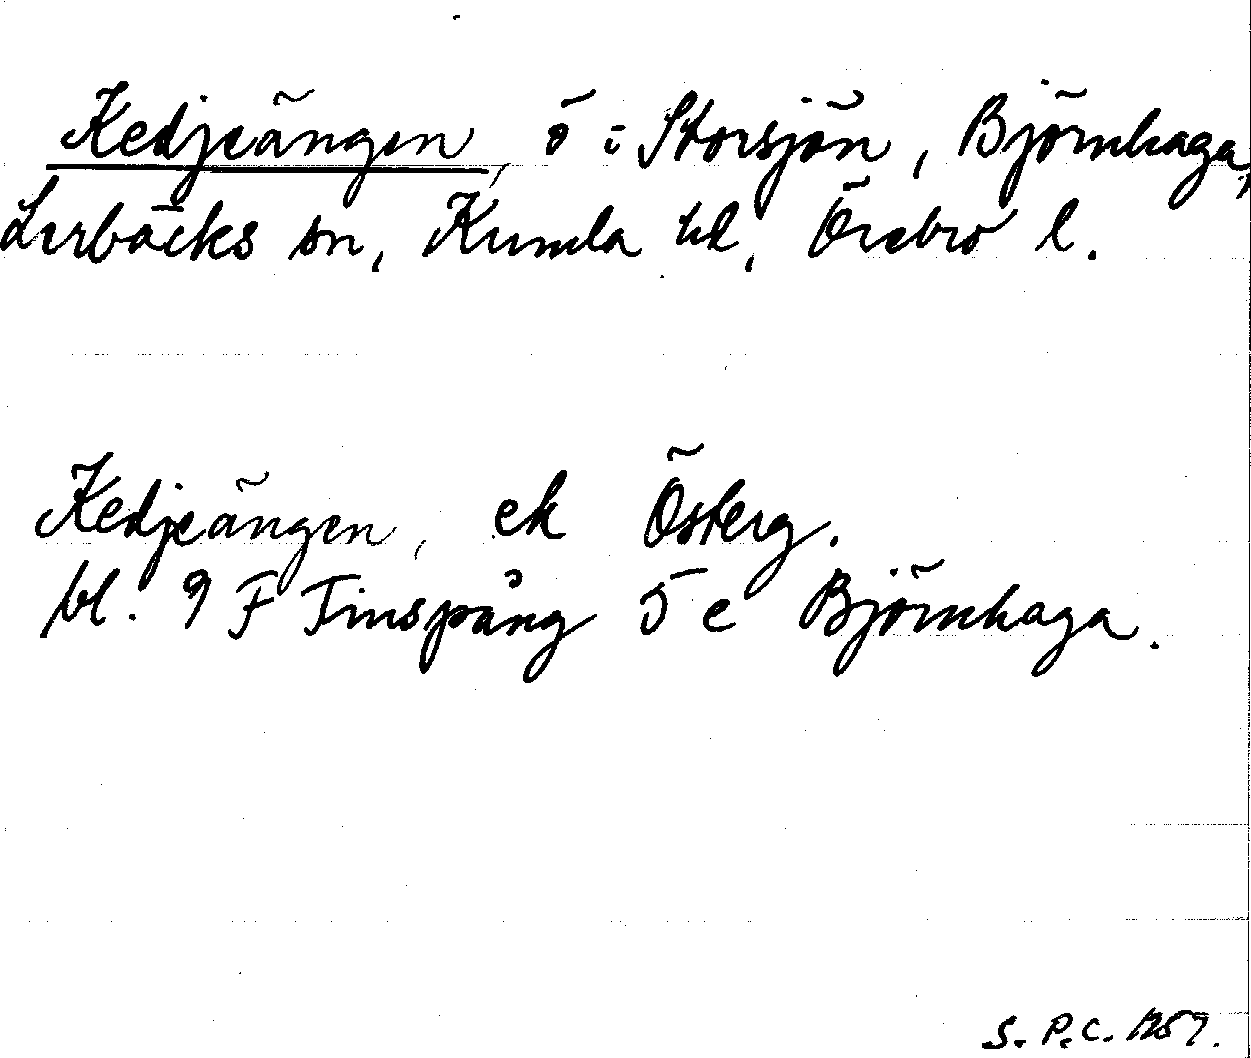 Kedjeängen, ö i Storsjön, Björnhaga,
Lerbäcks sn, Kumla hd, Örebro l.
Kedjeängen, ek Österg.
bl. 9 F Finspång 5 e Björnhaga.
S. P. C. 1959.